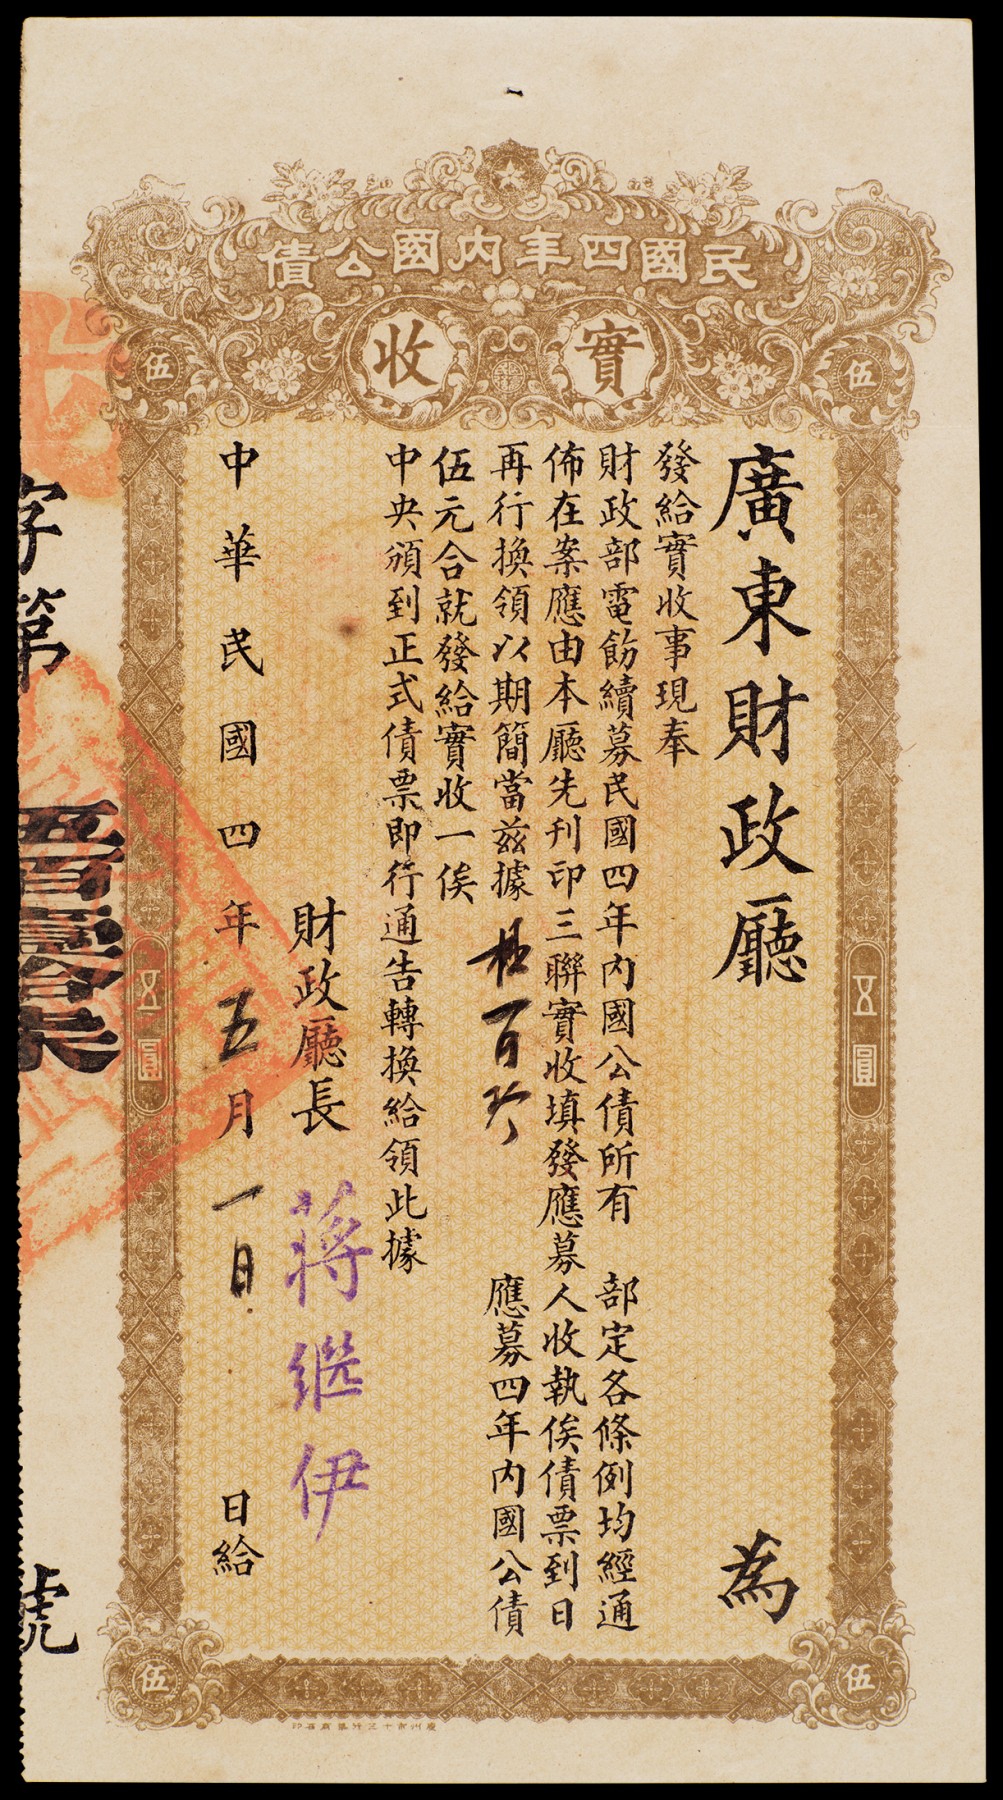 民國四年內國公債
實收
伍
伍
廣東財政廳 為
發給實收事現奉
財政部電飭續募民國四年內國公債所有 部定各條例均經通
佈在案應由本廳先刊印三聯實收填發應募人收執俟債票到日
再行換領以期簡當茲據 應募四年內國公債
伍元合就發給實收一俟
中央頒到正式債票即行通告轉換給領此據
財政廳長 蔣繼伊
中華民國四年五月一日 日給
五圓
五圓
字第
號
伍
伍